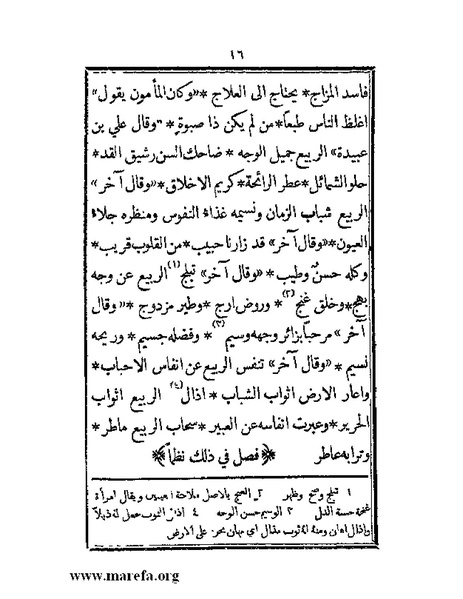 ١٦
فاسد المزاج * يحتاج الى العلاج * «وكان المأمون يقول»
اغلظ الناس طبعاً * من لم يكن ذا صبوةٍ * «وقال علي بن
عبيدة» الربيع جميل الوجه * ضاحك السن رشيق القد *
حلو الشمائل * عطر الرائحة * كريم الاخلاق * «وقال آخر»
الربيع شباب الزمان ونسيمه غذاء النفوس ومنظره جلاء
العيون * «وقال آخر» قد زارنا حبيب * من القلوب قريب *
وكله حسنٌ وطيب * «وقال آخر» تبلج (١) الربيع عن وجه
بهج * وخلق غنج (٢) * وروض ارج * وطير مزدوج * «وقال
آخر» مرحباً بزائر وجهه وسيم (٣) * وفضله جسيم * وريحه
نسيم * «وقال آخر» تنفس الربيع عن انفاس الاحباب *
واعار الارض اثواب الشباب * اذال (٤) الربيع اثواب
الحرير * وعبرت انفاسه عن العبير * سحاب الربيع ماطر *
وترابه عاطر ﴿ فصل في ذلك نظماً ﴾
١ تبلج وضح وظهر ٢ الغنج بالاصل ملاحة العينين ويقال امرأة
غنجة حسنة الدل ٣ الوسيم حسن الوجه ٤ اذال الثوب جعل له ذيلاً
واذال اهان ومنه ثوب مذال اي مهان يجر على الارض
www.marefa.org